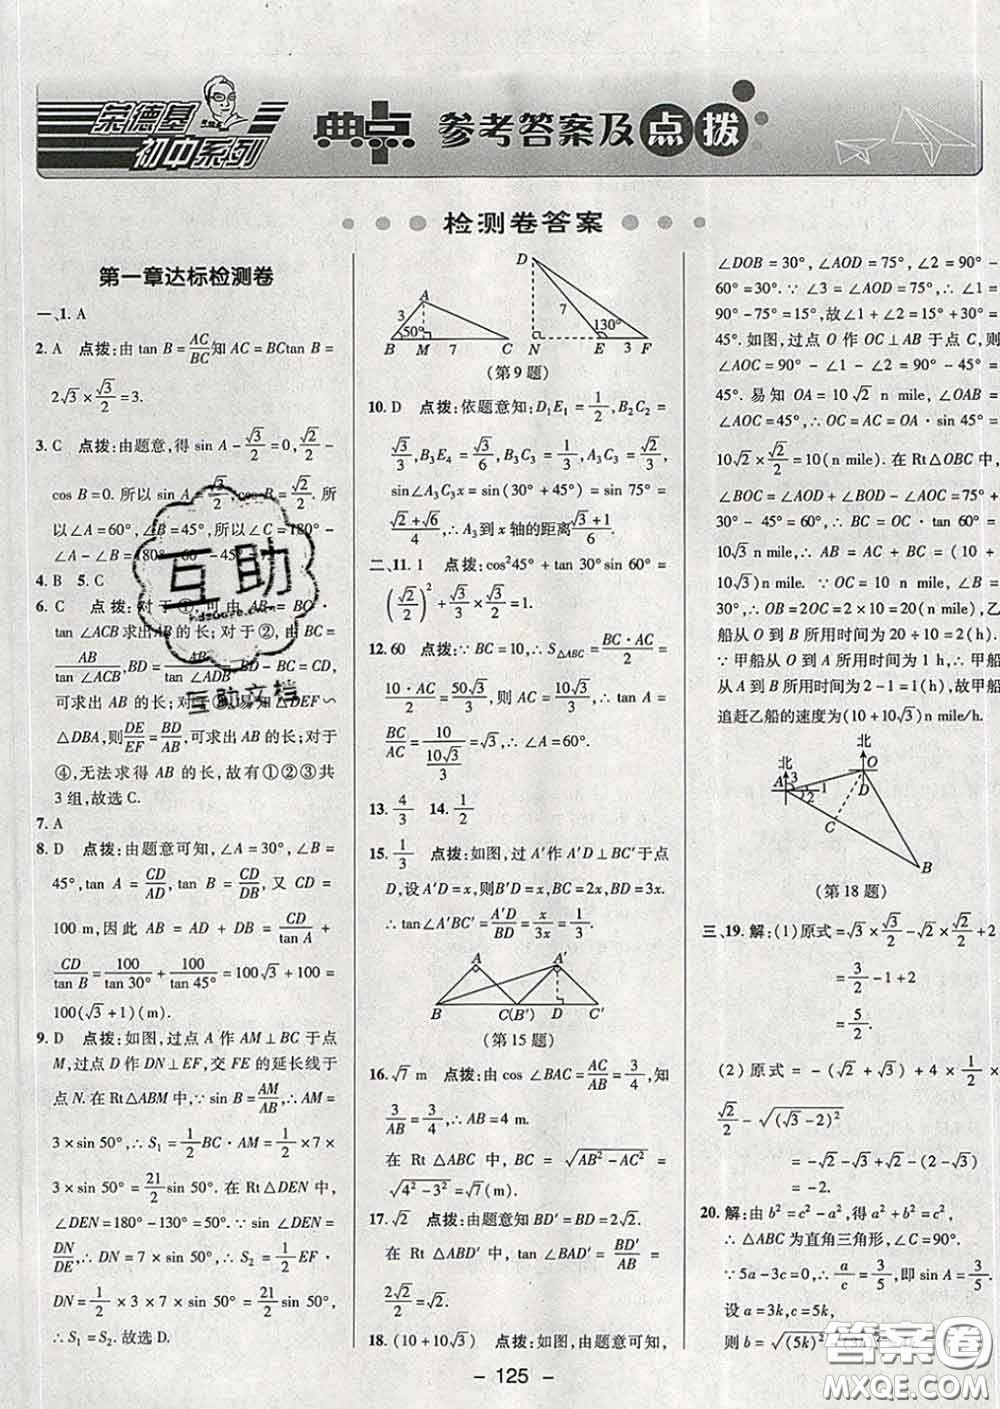 荣德基
初中系列
典点 参考答案及点拨
检测卷答案
第一章达标检测卷
一、1. A
2. A 点拨:由 tan B = AC/BC 知 AC = BC tan B =
2√3 × √3/2 = 3.
3. C 点拨:由题意,得 sin A − √3/2 = 0, √2/2 −
cos B = 0. 所以 sin A = √3/2, cos B = √2/2. 所
以∠A = 60°, ∠B = 45°, 所以∠C = 180° −
∠A − ∠B = 180° − 60° − 45° = 75°.
4. B 5. C
6. C 点拨:对于①,可由 AB = BC·
tan ∠ACB 求出 AB 的长;对于②,由 BC =
AB/tan ∠ACB, BD = AB/
可求出 AB 的长;对于③,易知 △DEF ∽
△DBA, 则 DE/EF = BD/AB, 可求出 AB 的长;对于
④,无法求得 AB 的长,故有①②③共
3 组,故选 C.
7. A
8. D 点拨:由题意可知,∠A = 30°, ∠B =
45°, tan A = CD/AD, tan B = CD/DB, 又 CD =
100 m, 因此 AB = AD + DB = CD/tan A +
CD/tan B = 100/tan 30° + 100/tan 45° = 100√3 + 100 =
100(√3 + 1)(m).
9. D 点拨:如图,过点 A 作 AM ⊥ BC 于点
M, 过点 D 作 DN ⊥ EF, 交 FE 的延长线于
点 N. 在 Rt△ABM 中, ∵ sin B = AM/AB, ∴ AM =
3 × sin 50°, ∴ S₁ = 1/2 BC · AM = 1/2 × 7 ×
3 × sin 50° = 21/2 sin 50°. 在 Rt△DEN 中,
∠DEN = 180° − 130° = 50°. ∵ sin ∠DEN =
DN/DE, ∴ DN = 7 × sin 50°, ∴ S₂ = 1/2 EF ·
DN = 1/2 × 3 × 7 × sin 50° = 21/2 sin 50°,
∴ S₁ = S₂. 故选 D.
A 3 50° B M 7 C
D 7 130° N E 3 F
(第 9 题)
10. D 点拨:依题意知:D₁E₁ = 1/2, B₂C₂ =
√3/3, B₃E₄ = √3/6, B₃C₃ = 1/3, A₃C₃ = 1/3,
sin∠A₃C₃x = sin(30° + 45°) =
(√2 + √6)/4, ∴ A₃ 到 x 轴的距离 (√3 + 1)/6.
二、11. 1 点拨:cos²45° + tan 30° sin 60° =
(√2/2)² + √3/3 × √3/2 = 1.
12. 60 点拨:∵ BC = 10, ∴ S△ABC = BC · AC/2
= 10 · AC/2 = 50√3/3, 则 AC = 10√3/3, ∴ tan A =
BC/AC = 10/(10√3/3) = √3, ∴ ∠A = 60°.
13. 4/3 14. 1/2
15. 1/3 点拨:如图,过 A′作 A′D ⊥ BC′于点
D, 设 A′D = x, 则 B′D = x, BC = 2x, BD = 3x.
∴ tan∠A′BC′ = A′D/BD = x/3x = 1/3.
A A′ B C(B′) D C′
(第 15 题)
16. √7 m 点拨:由 cos ∠BAC = AC/AB = 3/4, 知
3/AB = 3/4, ∴ AB = 4 m.
在 Rt △ABC 中, BC = √(AB² − AC²) =
√(4² − 3²) = √7 (m).
17. √2 点拨:由题意知 BD′ = BD = 2√2.
在 Rt △ABD′ 中, tan ∠BAD′ = BD′/AB =
2√2/2 = √2.
18. (10 + 10√3) 点拨:如图,由题意可知,
∠DOB = 30°, ∠AOD = 75°, ∠2 = 90° −
60° = 30°. ∵ ∠3 = ∠AOD = 75°, ∴ ∠1 =
90° − 75° = 15°, 故∠1 + ∠2 = 15° + 30° =
45°. 如图,过点 O 作 OC ⊥ AB 于点 C, 则
∠AOC = 90° − ∠1 − ∠2 = 90° − 45° =
45°. 易知 OA = 10√2 n mile, ∠OAB =
∠AOC = 45°, ∴ OC = AC = OA · sin 45° =
10√2 × √2/2 = 10(n mile). 在 Rt△OBC 中,
∠BOC = ∠AOB − ∠AOC = 75° +
30° − 45° = 60°, ∴ BC = OC ·
10√3 n mile, ∴ AB = AC + BC = (10 +
10√3) n mile,
船从 O 到 B 所用时间为 20 ÷ 10 = 2(h).
∵ 甲船从 O 到 A 所用时间为 1 h, ∴ 甲船
从 A 到 B 所用时间为 2 − 1 = 1(h), 故甲船
追赶乙船的速度为(10 + 10√3)n mile/h.
北 A 3 1 2 北 O D C B
(第 18 题)
三、19. 解:(1)原式 = √3 × √3/2 − √2 × √2/2 + 2
= 3/2 − 1 + 2
= 5/2.
(2)原式 = −(√2 + √3) + 4 × 1/2 ×
√2/2 − √((√3 − 2)²)
= −√2 − √3 + √2 − (2 − √3)
= −2.
20. 解:由 b² = c² − a², 得 a² + b² = c²,
∴ △ABC 为直角三角形,∠C = 90°.
∵ 5a − 3c = 0, ∴ a/c = 3/5, 即 sin A = 3/5.
设 a = 3k, c = 5k,
则 b = √((5k)²
互助
互助文档
答案圈
MXQE.COM
- 125 -